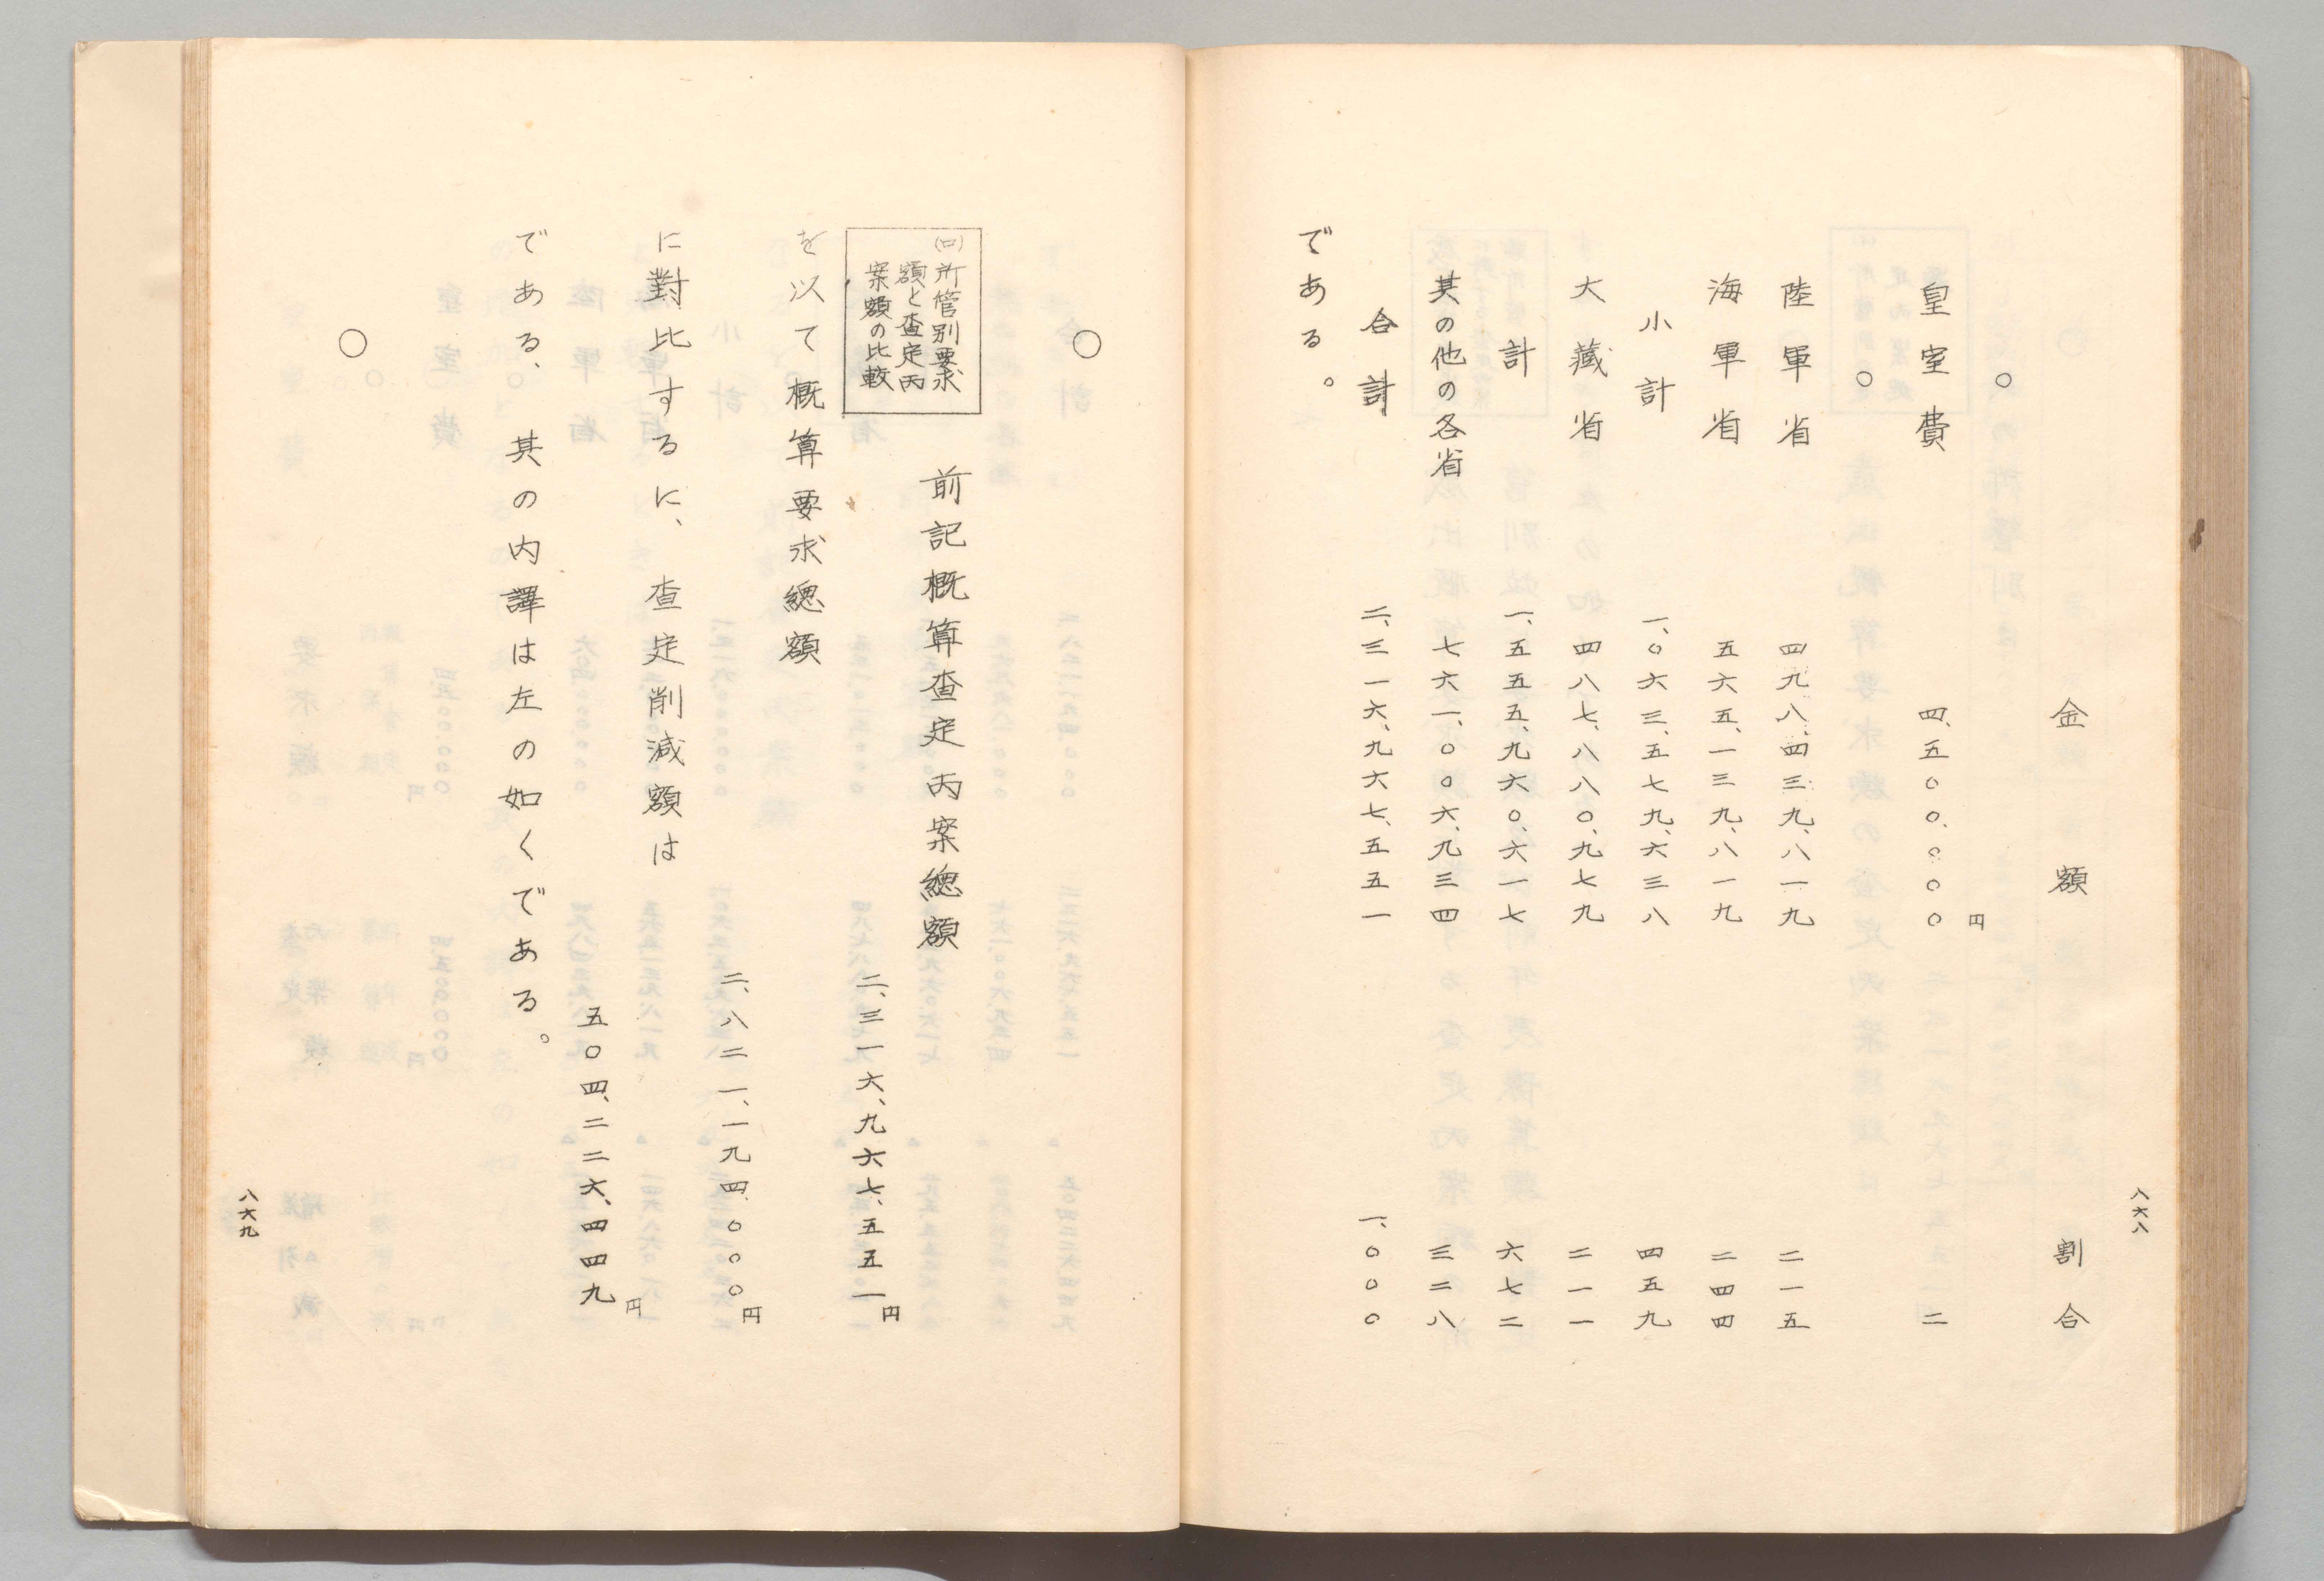 八六八
金額 割合
○
皇室費 四、五〇〇、〇〇〇円 二
○
陸軍省 四九八、四三九、八一九 二一五
海軍省 五六五、一三九、八一九 二四四
小計 一、〇六三、五七九、六三八 四五九
大藏省 四八七、八八〇、九七九 二一一
計 一、五五五、九六〇、六一七 六七二
其の他の各省 七六一、〇〇六、九三四 三二八
合計 二、三一六、九六七、五五一 一、〇〇〇
である。
○
(ロ)所管別要求
額と査定丙
案額の比較
前記概算査定丙案總額
二、三一六、九六七、五五一円
を以て概算要求總額
二、八二一、一九四、〇〇〇円
に對比するに、査定削減額は
五〇四、二二六、四四九円
である、其の内譯は左の如くである。
○
八六九